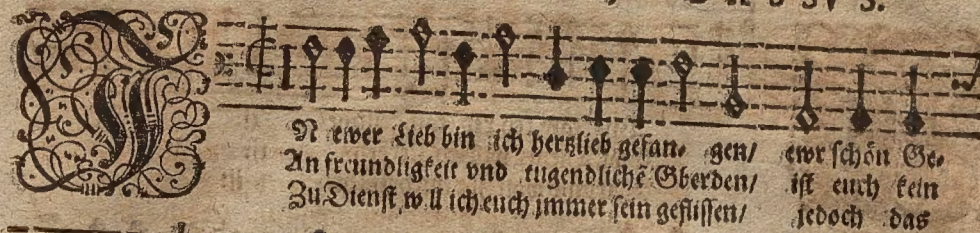 IN ewer Lieb bin ich hertzlieb gefan⸗ gen/ ewr schön Ge⸗
An freundligkeit vnd tugendlichē Gberden/ ist euch kein
Zu Dienst w ll ich euch jmmer sein geflissen/ jedoch das